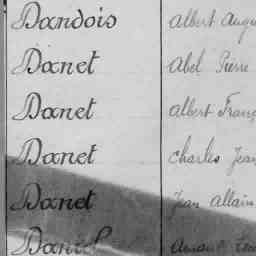 Dandois Albert Augu
Danet Abel Pierre
Danet Albert Franç
Danet Charles Jean
Danet Jean Allain
Daniel